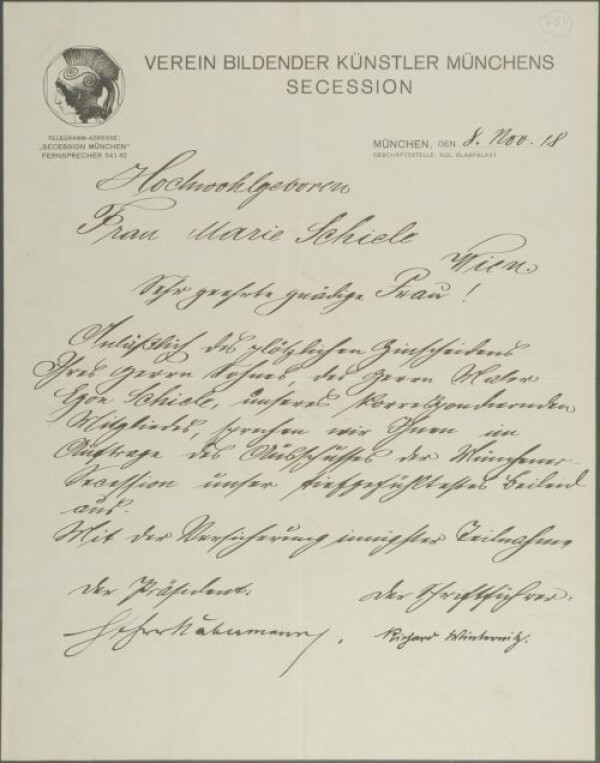 VEREIN BILDENDER KÜNSTLER MÜNCHENS
SECESSION
TELEGRAMM-ADRESSE:
„SECESSION MÜNCHEN"
FERNSPRECHER 54143
MÜNCHEN, DEN 8. Nov. 18
GESCHÄFTSSTELLE: KGL. GLASPALAST
Hochwohlgeboren
Frau Marie Schiele
Wien.
Sehr geehrte gnädige Frau!
Anläßlich des plötzlichen Hinscheidens
Ihres Herrn Sohnes, des Herrn Maler
Egon Schiele, unseres korrespondierenden
Mitgliedes, sprechen wir Ihnen im
Auftrage des Ausschusses der Münchener
Secession unser tiefgefühltestes Beileid
aus.
Mit der Versicherung innigster Teilnahme
Der Präsident: Der Schriftführer:
Habermann. Richard Winternitz.